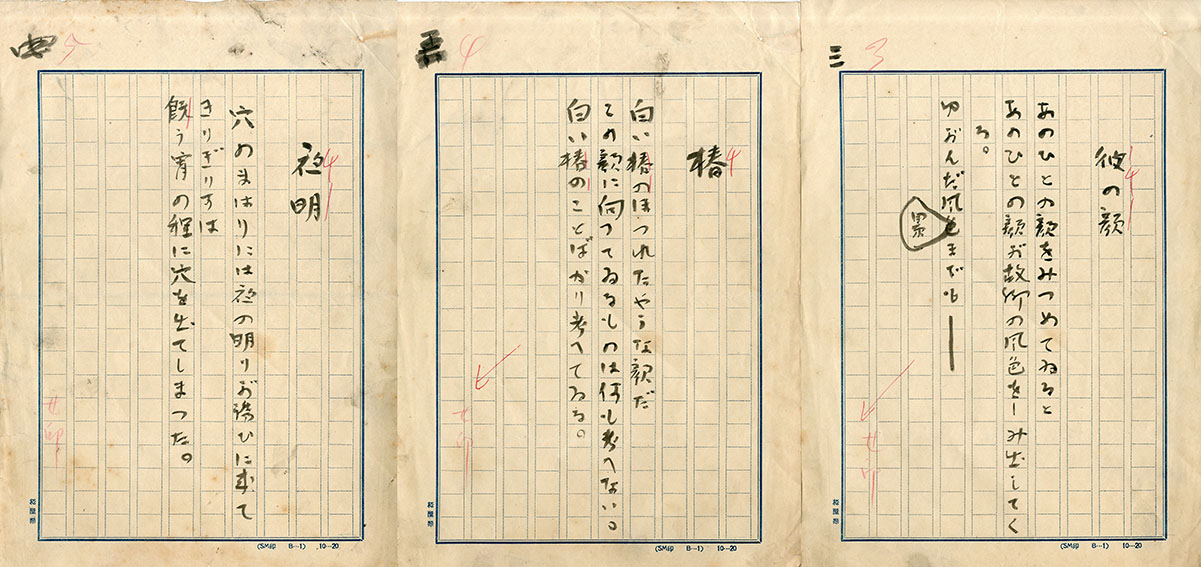 三 3
彼の顔
あのひとの顔をみつめてゐると
あのひとの顔が故郷の風色をしみ出してく
る。
ゆがんだ風色までも――
(SM印 B—1) 10—20
4
椿
白い椿のほつれたやうな顔だ
その顔に向つてゐるものは何も考へない。
白い椿のことばかり考へてゐる。
(SM印 B—1) 10—20
5
夜明
穴のまはりには夜の明りが誘ひに来て
きりぎりすは
既う宵の程に穴を出てしまつた。
(SM印 B—1) 10—20